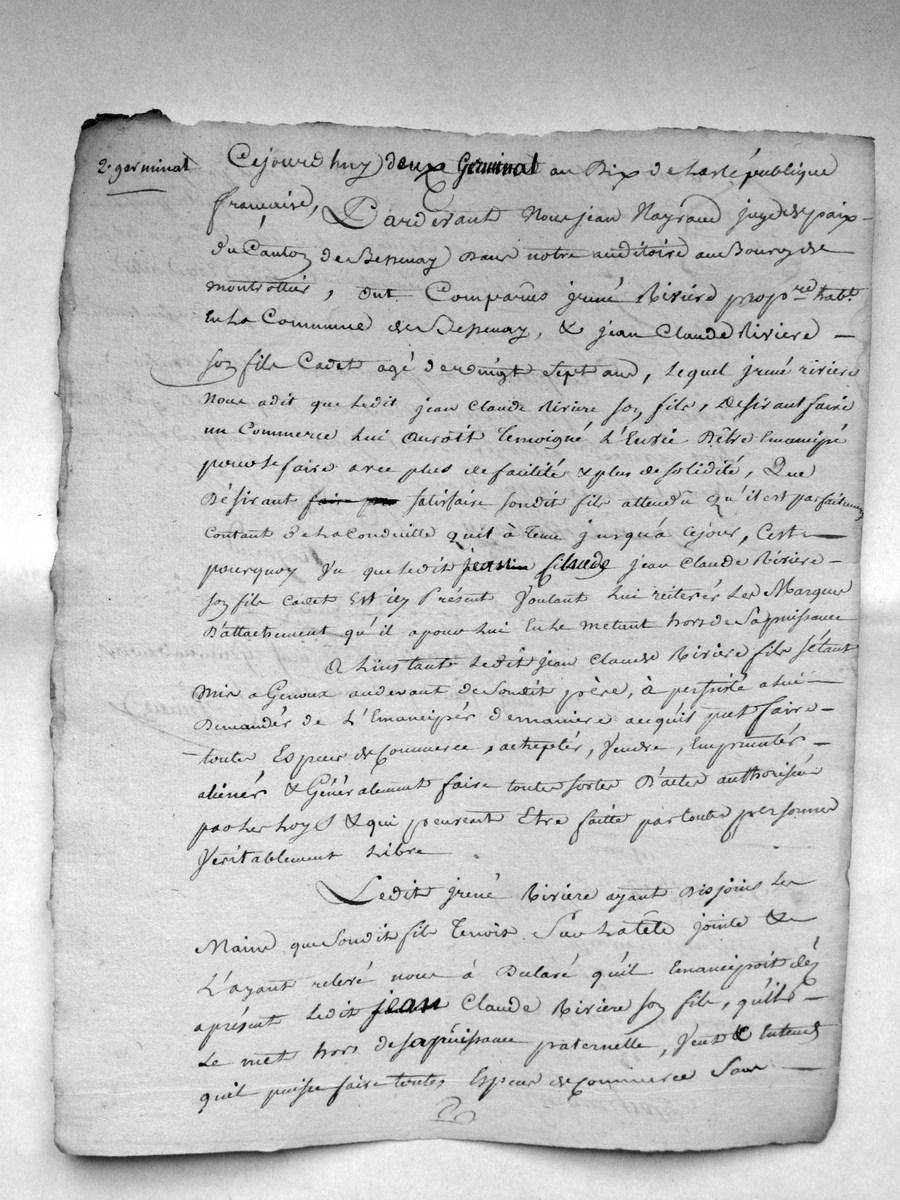 2e germinal
Cejourdhuy deux Germinal an Dix de la République
française, Pardevant Nous jean Nayraud juge de paix
du Canton de Bessenay Dans notre auditoire au Bourg de
montrottier, ont Comparûs jréné Riviére propre. habt.
En La Commune de Bessenay, & jean Claude Riviere
son fils Cadet agé de vingt Sept ans, Lequel jréné riviere
Nous a dit que Ledit jean Claude Riviere son fils, Désirant faire
un Commerce Lui auroit Temoigné L'Envie D'être Emancipé
pour Le faire avec plus de facilité & plus de solidité, Que
Désirant satisfaire sondit fils attendû qu'il est parfaitement
Contant De La Conduitte quil à Tenu jusqu'à Cejour, C'est
pourquoy Vu que Ledit jean Claude Riviére
son fils Cadet Est icy Présent Voulant Lui réiterér Les Marques
D'attachement qu'il a pour Lui En Le mettant hors de Sa puissance
A Linstant Ledit jean Claude Riviére fils s'étant
mis a Genoux audevant de Soudit pére, à persisté a Lui
Demandér de L'Emancipér demaniere a cequ'il put faire
toute Espece de Commerce, acheptér, Vendre, Empruntér
aliénér & Généralement faire toute sortes D'actes authorisée
par Les Loys & qui peuvent Etre faitte par toute personnes
Veritablement Libre
Ledit jréné Riviére ayant Disjoins Les
Mains que Soudit fils Tenoit Sur La tête jointe &
L'ayant relevé nous à Déclaré qu'il Emancipoit déz
aprésent Ledit jean Claude Riviére son fils, qu'il
Le met hors de sa puissance paternelle, Veut & Entend
qu'il puisse faire toutes Espece de Commerce Sans